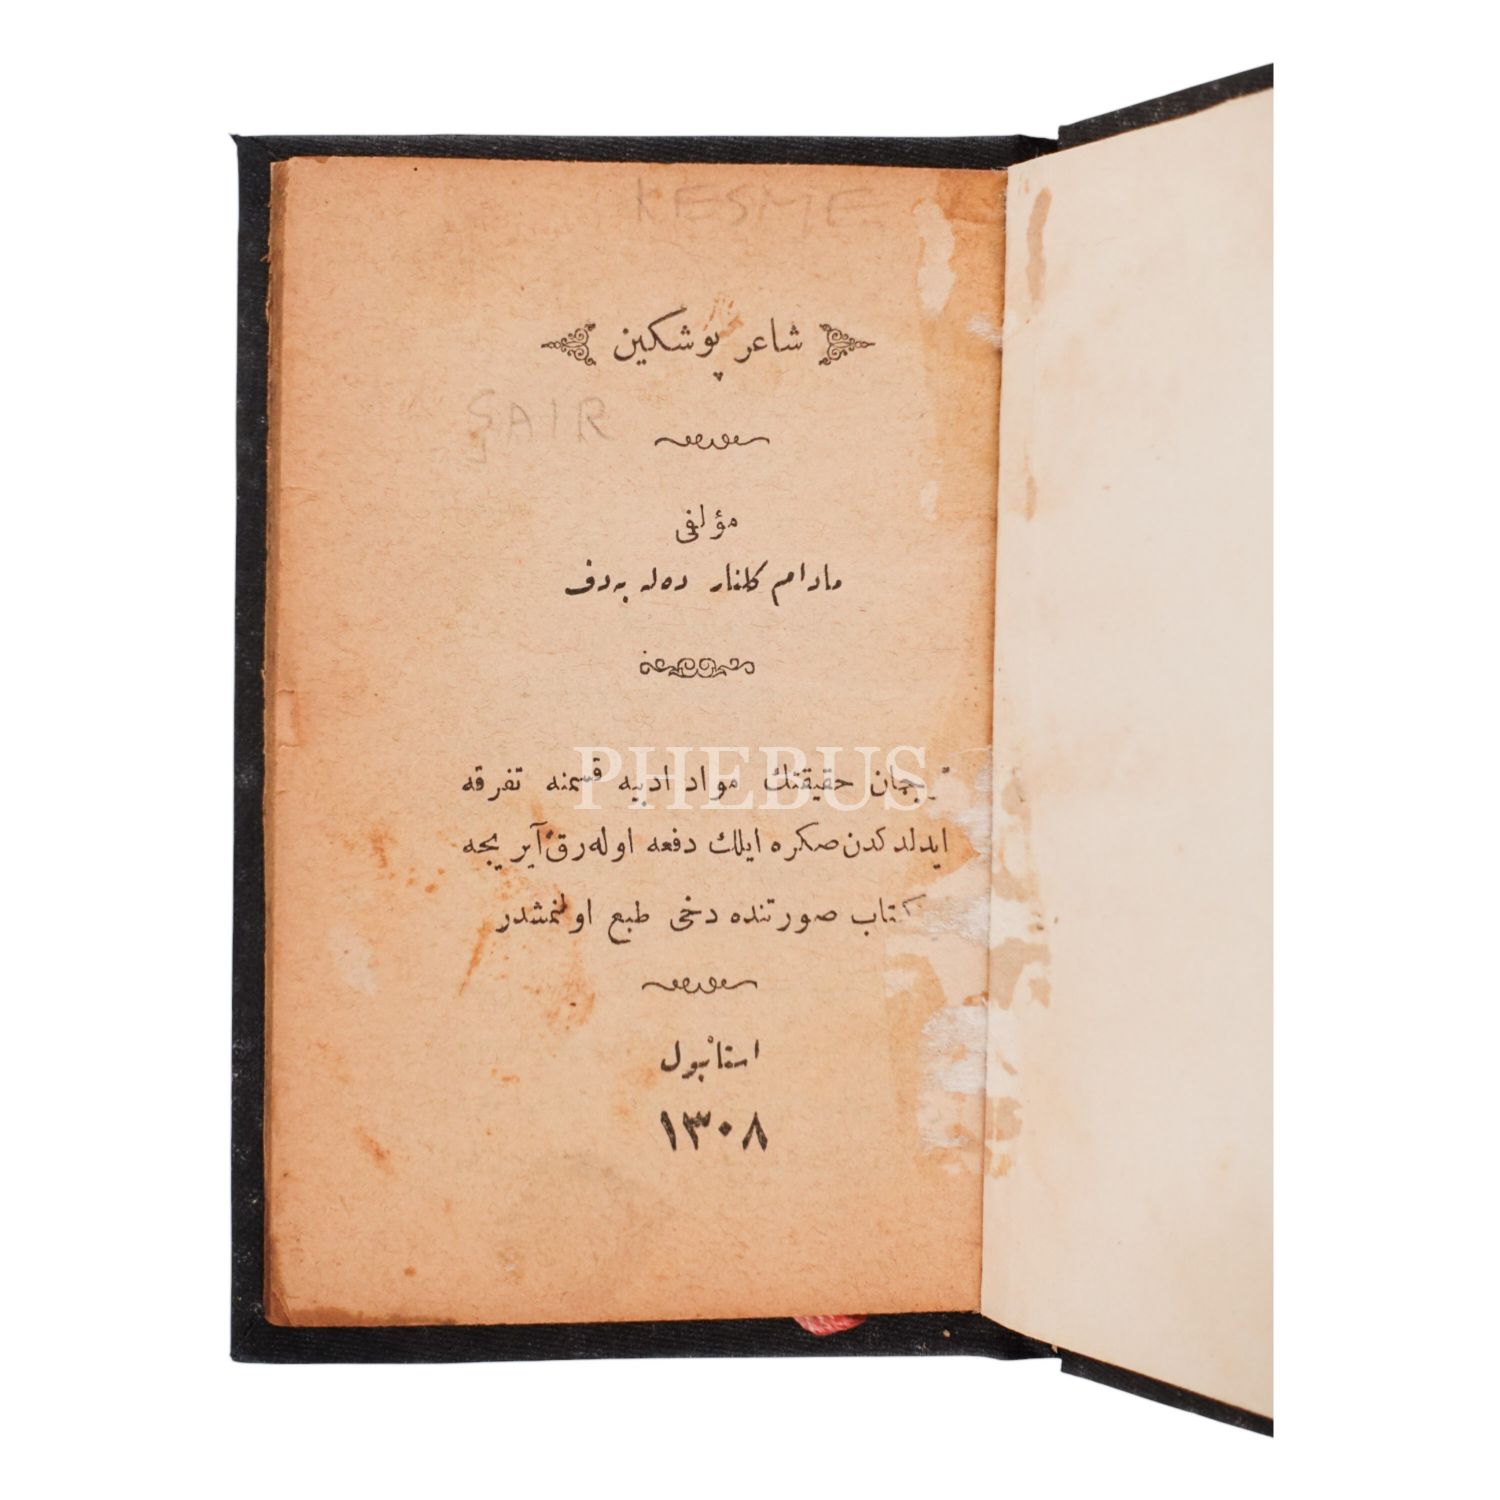 KESME
شاعر پوشكين
ŞAIR
مؤلفی
مادام كلنار ده له به دف
PHEBUS
ترجمان حقيقتك مواد ادبيه قسمنه تفرقه
ايدلدكدن صكره ايلك دفعه اوله رق آيريجه
كتاب صورتنده دخی طبع اولنمشدر
استانبول
١٣٠٨